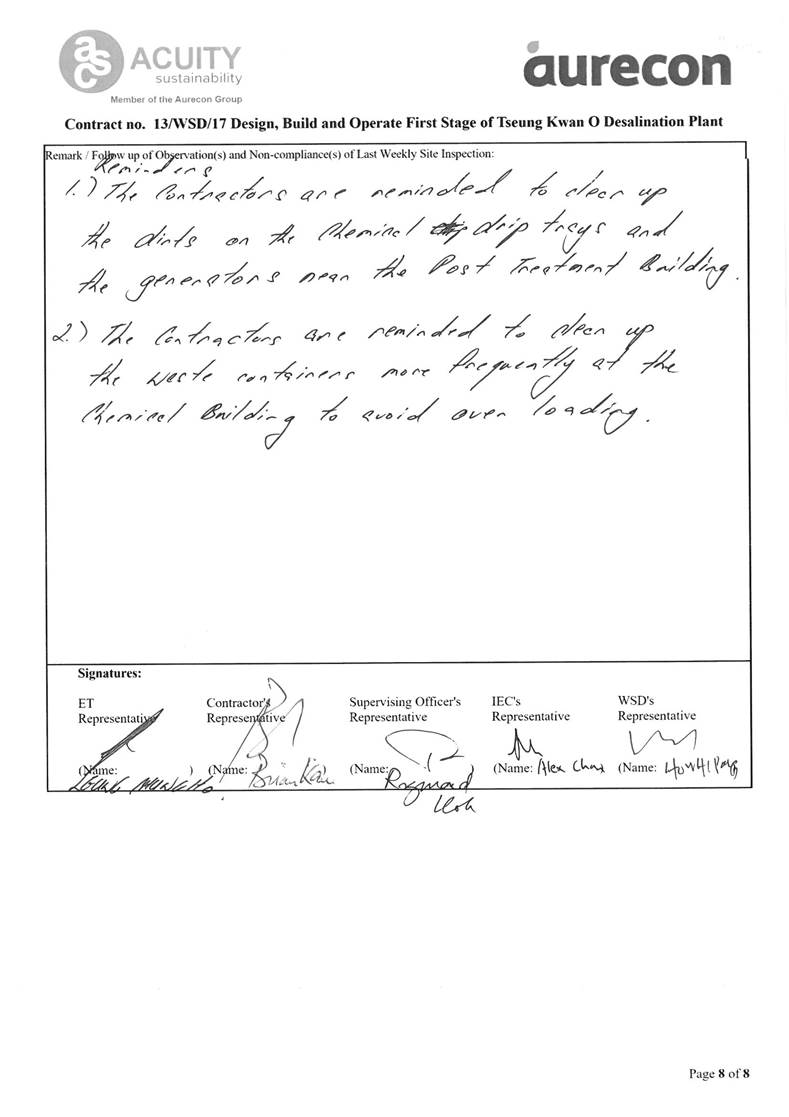 asc ACUITY
sustainability
Member of the Aurecon Group
aurecon
Contract no. 13/WSD/17 Design, Build and Operate First Stage of Tseung Kwan O Desalination Plant
Remark / Follow up of Observation(s) and Non-compliance(s) of Last Weekly Site Inspection:
Reminders
1.) The Contractors are reminded to clear up
the dirts on the chemical drip trays and
the generators near the Post Treatment Building.
2.) The Contractors are reminded to clean up
the waste containers more frequently at the
Chemical Building to avoid over loading.
Signatures:
ET Representative
Contractor's Representative
Supervising Officer's Representative
IEC's Representative
WSD's Representative
(Name: )
(Name: Brian
(Name: Raymond
(Name: Alex
(Name:
Page 8 of 8